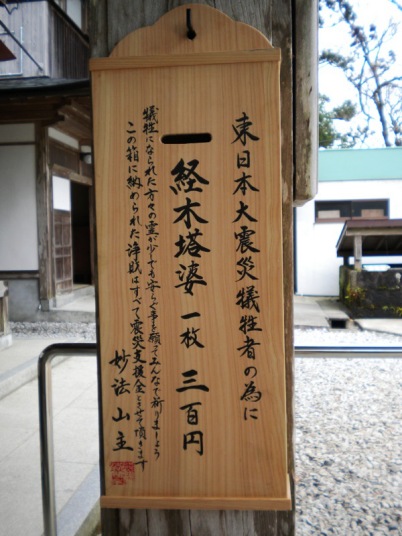 東日本大震災犠牲者の為に
経木塔婆 一枚 三百円
犠牲になられた方々の霊が少しでも安らぐ事を願ってみんなで祈りましょう
この箱に納められた浄財はすべて震災支援金とさせて頂きます
妙法山主